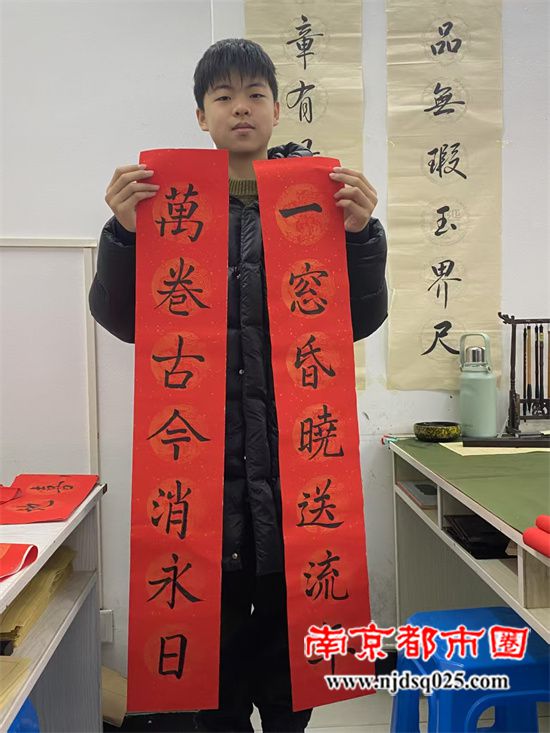 萬卷古今消永日
一窓昏曉送流年
品無瑕玉界尺
章有
南京都市圈
www.njdsq025.com